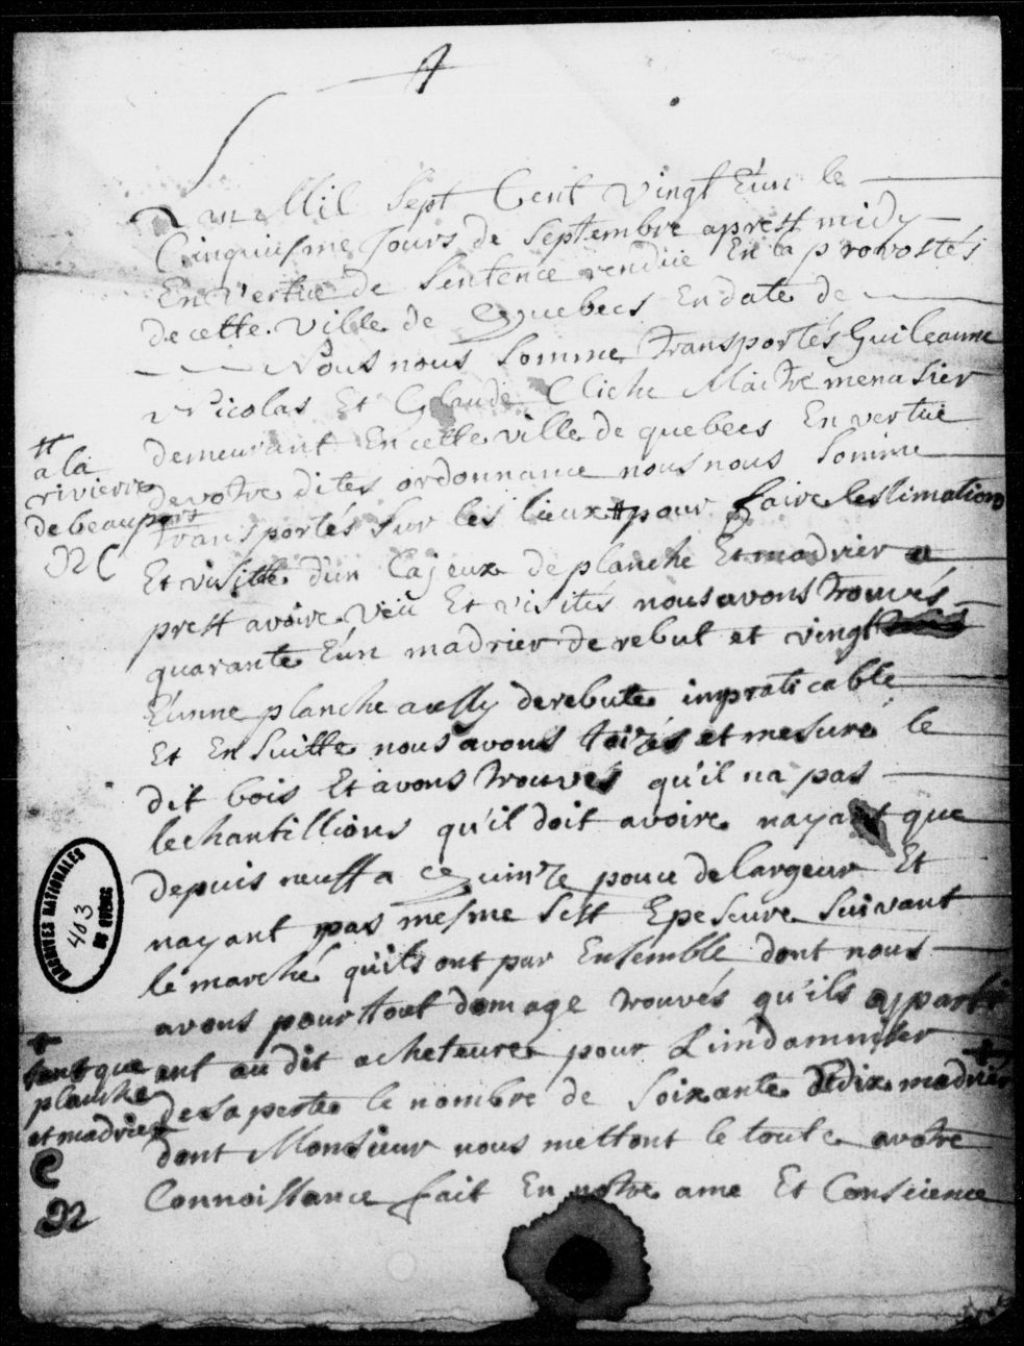 Lan Mil Sept Cent vingt Eun le
Cinquiesme Jours de Septembre aprest midy
En vertue de Sentence rendüe En la provostés
de cette ville de Quebecs En date de
Nous nous Somme transportés Guileaume
Nicolas Et Claude Cliche Maitre menasier
demeurant En cette ville de quebecs En vertue
devotre dites ordonnance nous nous Somme
transportés Sur les lieux # pour faire lestimations
# a la
rivierre
de beauport
NC
Et visitte d'un Cajeux de planche Et madrier a
prest avoire veü Et visités nous avons trouvés
quarante Eun madrier de rebut et vingt
Eunne planche aussy derebute impraticable
Et En Suitte nous avons toizés et mesuré le
dit bois Et avons trouvés qu'il na pas
lechantillions qu'il doit avoire nayant que
depuis neuff a Quinze pouce de largeur Et
nayant pas mesme Sest Epeseure Suivant
le marché quils ont par Ensemble dont nous
avons pour ttout domage trouvés qu'ils apparti
ent au dit acheteure pour Lindammiser
desa perte le nombre de Soixante Et dix madrier +
+
tant que
planche
et madrier
C
N
dont Monsieur nous mettont le toute avotre
Connoissance fait En notre ame Et Conscience
ARCHIVES NATIONALES
403
DE QUÉBEC